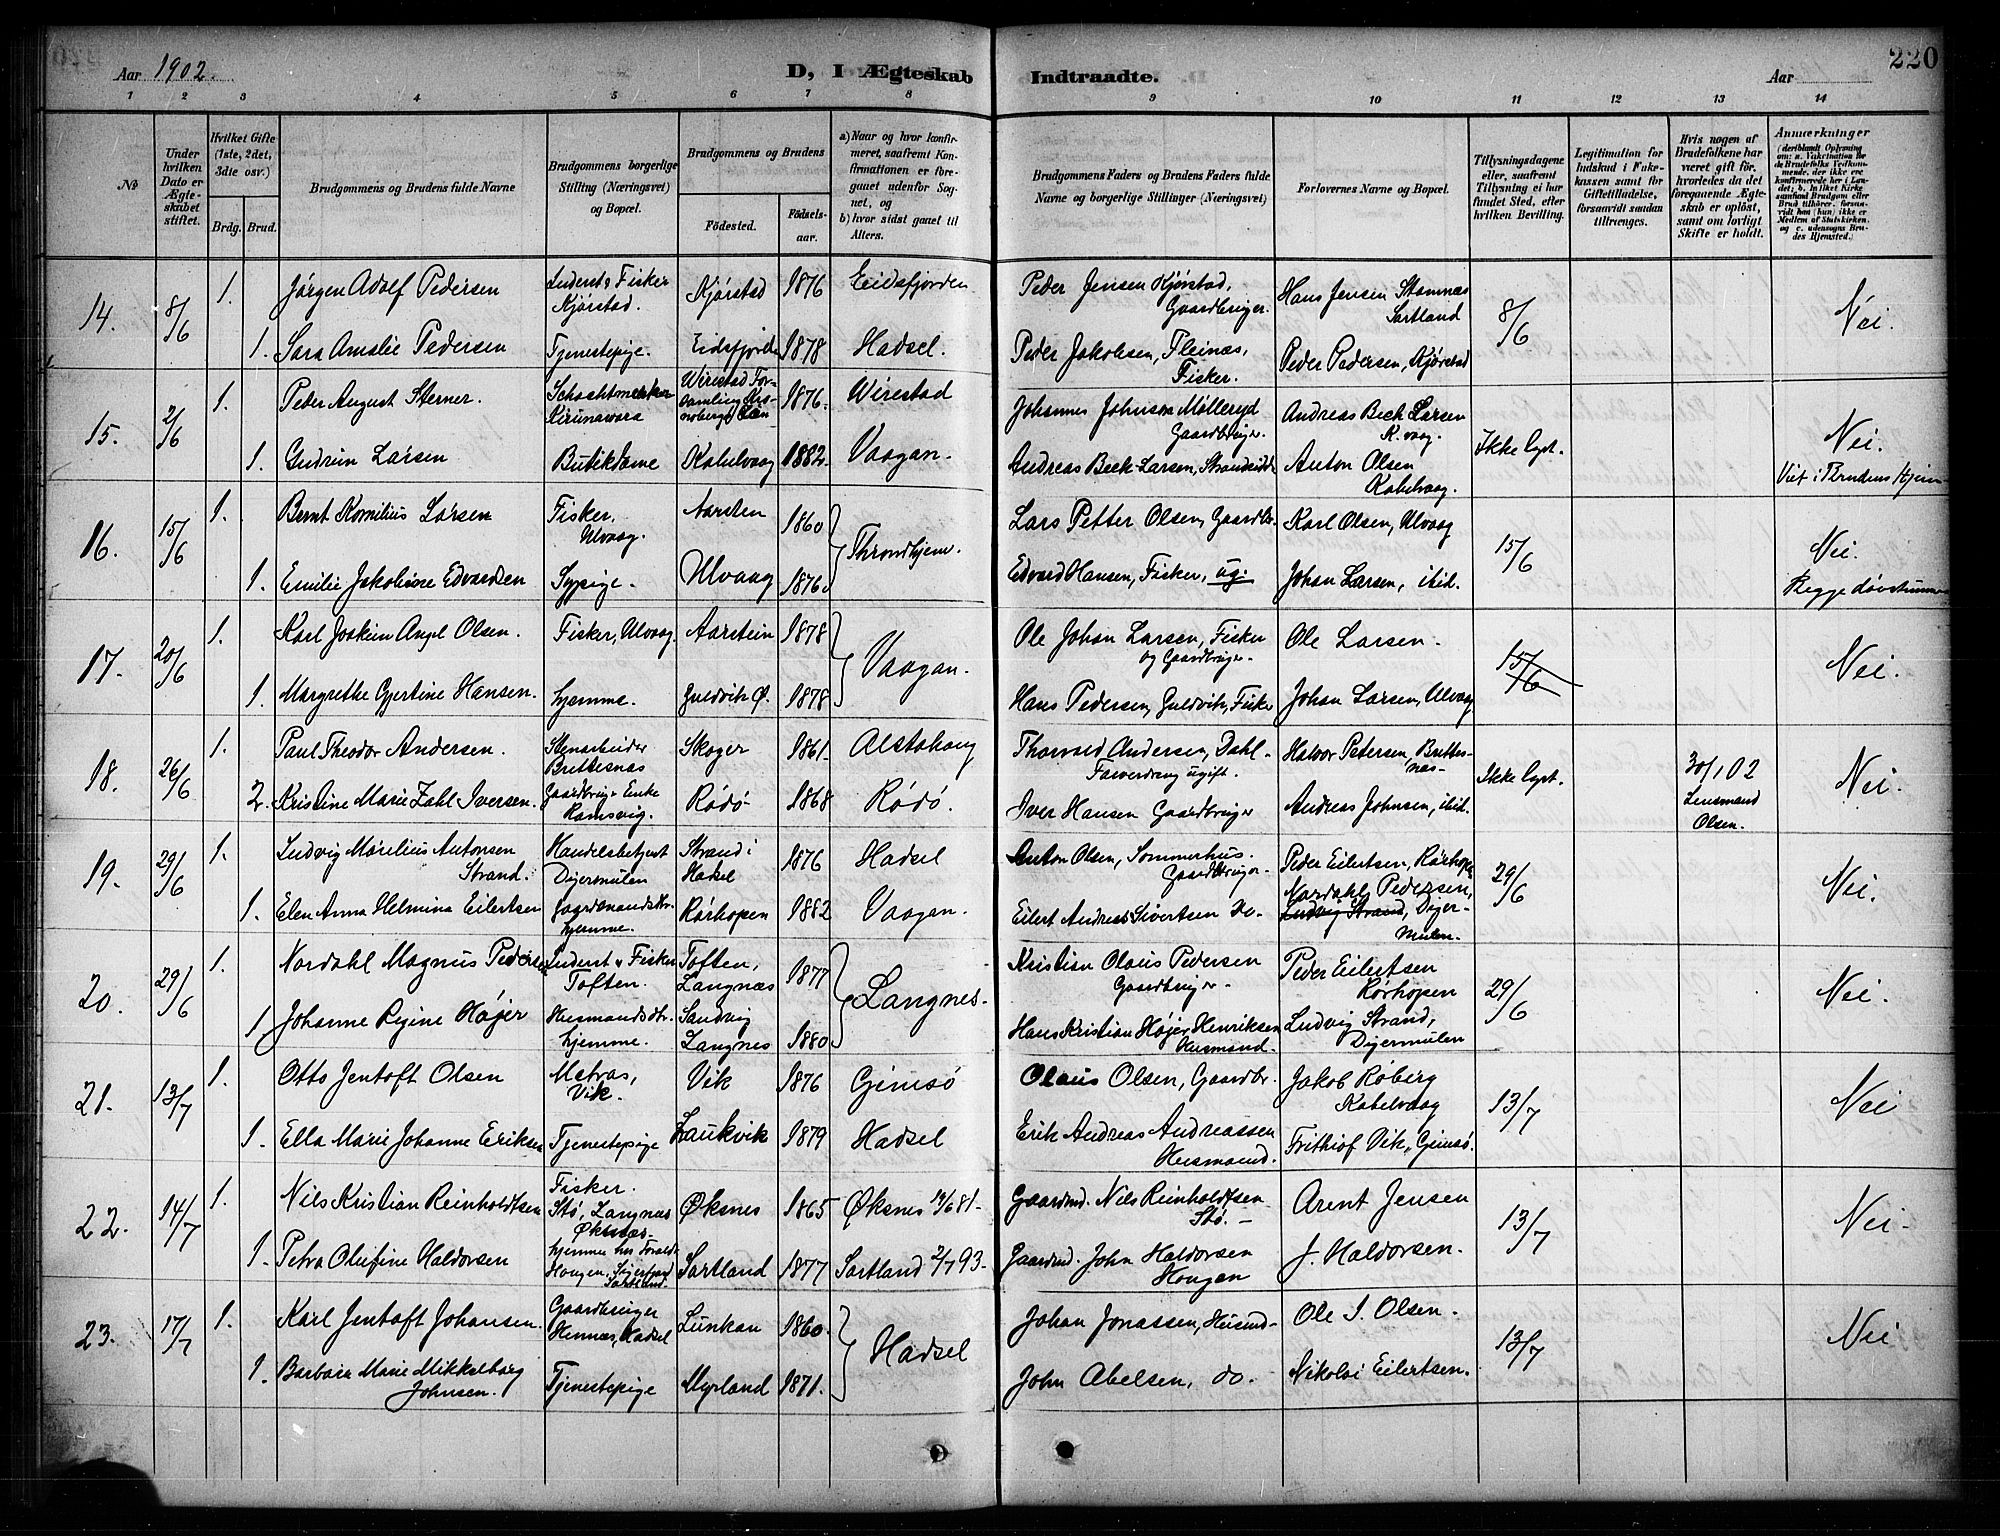 Aar 1902.
D, I Ægteskab Indtraadte.
Aar
220
1 2 3 4 5 6 7 8 9 10 11 12 13 14
No
Under hvilken Dato er Ægteskabet stiftet.
Hvilket Gifte (1ste, 2det, 3die osv.)
Brdg. Brud.
Brudgommens og Brudens fulde Navne
Brudgommens borgerlige Stilling (Næringsvei) og Bopæl.
Brudgommens og Brudens
Födested.
Födselsaar.
a) Naar og hvor konfirmeret, saafremt Konfirmationen er foregaaet udenfor Sognet, og
b) hvor sidst gaaet til Alters.
Brudgommens Faders og Brudens Faders fulde Navne og borgerlige Stillinger (Næringsvei)
Forlovernes Navne og Bopæl.
Tillysningsdagene eller, saafremt Tillysning ei har fundet Sted, efter hvilken Bevilling.
Legitimation for Indskud i Enkekassen samt for Giftetilladelse, forsaavidt saadan tiltrænges.
Hvis nogen af Brudefolkene har været gift før, hvorledes da det foregaaende Ægteskab er oplöst, samt om lovligt Skifte er holdt.
Anmærkninger
14. 8/6 1. Jørgen Adolf Pedersen Inderst & Fisker Kjørstad. Kjørstad 1876 Eidsfjorden Peder Jensen Kjørstad, Gaardbruger. Hans Jensen Stamnæs Sortland 8/6 Nei.
1. Sara Amalie Pedersen Tjenestepige. Eidsfjorden 1878 Hadsel. Peder Jakobsen, Fleinæs, Fisker. Peder Pedersen, Kjørstad
15. 2/6 1. Peder August Sterner. Kirunavara Wirestad 1876. Wirestad Johannes Johnson Mølleryd Gaardbruger. Andreas Beck Larsen K.vaag. Ikke lyst. Nei.
1. Gudrun Larsen Butikdame Kabelvaag 1882. Vaagan. Andreas Beck-Larsen, Anton Olsen Kabelvaag. Viet i Brudens Hjem
16. 15/6 1. Bernt Kornilius Larsen Fisker, Ulvaag. Aarsten 1860 Throndhjem. Lars Petter Olsen, Gaardbr. Karl Olsen, Ulvaag 15/6 Nei.
1. Emilie Jakobine Edvardsen Sypige. Ulvaag 1876. Edvard Hansen, Fisker, ug. Johan Larsen, ibid. Begge døvstumme
17. 20/6 1. Karl Joakim Angel Olsen. Fisker, Ulvaag. Aarstein 1878 Vaagan. Ole Johan Larsen, Fisker og Gaardbruger. Ole Larsen. 15/6 Nei.
1. Margrethe Gjertine Hansen. hjemme. Guldvik Ø. 1878 Hans Pedersen, Guldvik, Fisker Johan Larsen, Ulvaag
18. 26/6 1. Paul Theodor Andersen. Stenarbeider Brettesnæs Skoger 1861. Alstahaug Thorvald Andersen, Dahl- ugift. Halvor Petersen, Brettesnæs- Ikke lyst. 30/1 02 Lensmand Olsen. Nei.
2. Kristine Marie Zahl Iversen. Gaardbruger Enke Ramsvig. Rødø 1868 Rødø. Iver Hansen Gaardbruger Andreas Johnsen, ibid.
19. 29/6 1. Ludvig Marelius Antonsen Strand. Handelsbetjent Digermulen Strand i Hadsel 1876 Hadsel Anton Olsen, Sommerhus. Gaardbruger- Peder Eilertsen, Rørhopen 29/6 Nei.
1. Elen Anna Helmina Eilertsen hjemme. Rørhopen 1882 Vaagan. Eilert Andreas Sivertsen do. Nordahl Pedersen, Ludvig Strand, Digermulen.
20. 29/6 1. Nordahl Magnus Pedersen Inderst & Fisker Toften. Toften, Langnæs 1877 Langnes. Kristian Olaus Pedersen Gaardbruger. Peder Eilertsen Rørhopen 29/6 Nei.
1 Johanne Regine Højer Husmandsdtr. hjemme. Sandvig Langnes 1880 Hans Kristian Højer Henriksen Husmand. Ludvig Strand, Digermulen
21. 13/7 1. Otto Jentoft Olsen Matros, Vik. Vik 1876 Gimsø Olaus Olsen, Gaardbr. Jakob Røberg Kabelvaag 13/7 Nei
1. Ella Marie Johanne Eriksen Tjenestepige Laukvik 1879 Hadsel Erik Andreas Andreassen Husmand. Frithiof Vik, Gimsø.
22. 14/7 1. Nils Kristian Reinholdtsen Fisker. Stø, Langnæs Øksnæs- Øksnes 1865 Øksnes 19/6 81- Gaardmd. Nils Reinholdtsen Stø. Arent Jensen 13/7 Nei-
1. Petra Olufine Haldorsen hjemme hos Forældr. Hougen, Sigerfjord Sortland. Sortland 1877 Sortland 2/7 93- Gaardmd. John Haldorsen Hougen J. Haldorsen.
23. 17/7 1. Karl Jentoft Johansen. Gaardbruger Hennæs, Hadsel Lunkan 1860. Hadsel Johan Jonassen, Husmd- Ole J. Olsen. 13/7 Nei
1. Barbara Marie Mikkelborg Johnsen. Tjenestepige Myrland 1871. John Abelsen, do. Nikolai Eilertsen.